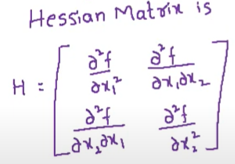 Hessian Matrix is
H = [ ∂²f/∂x₁² ∂²f/∂x₁∂x₂
∂²f/∂x₂∂x₁ ∂²f/∂x₂² ]